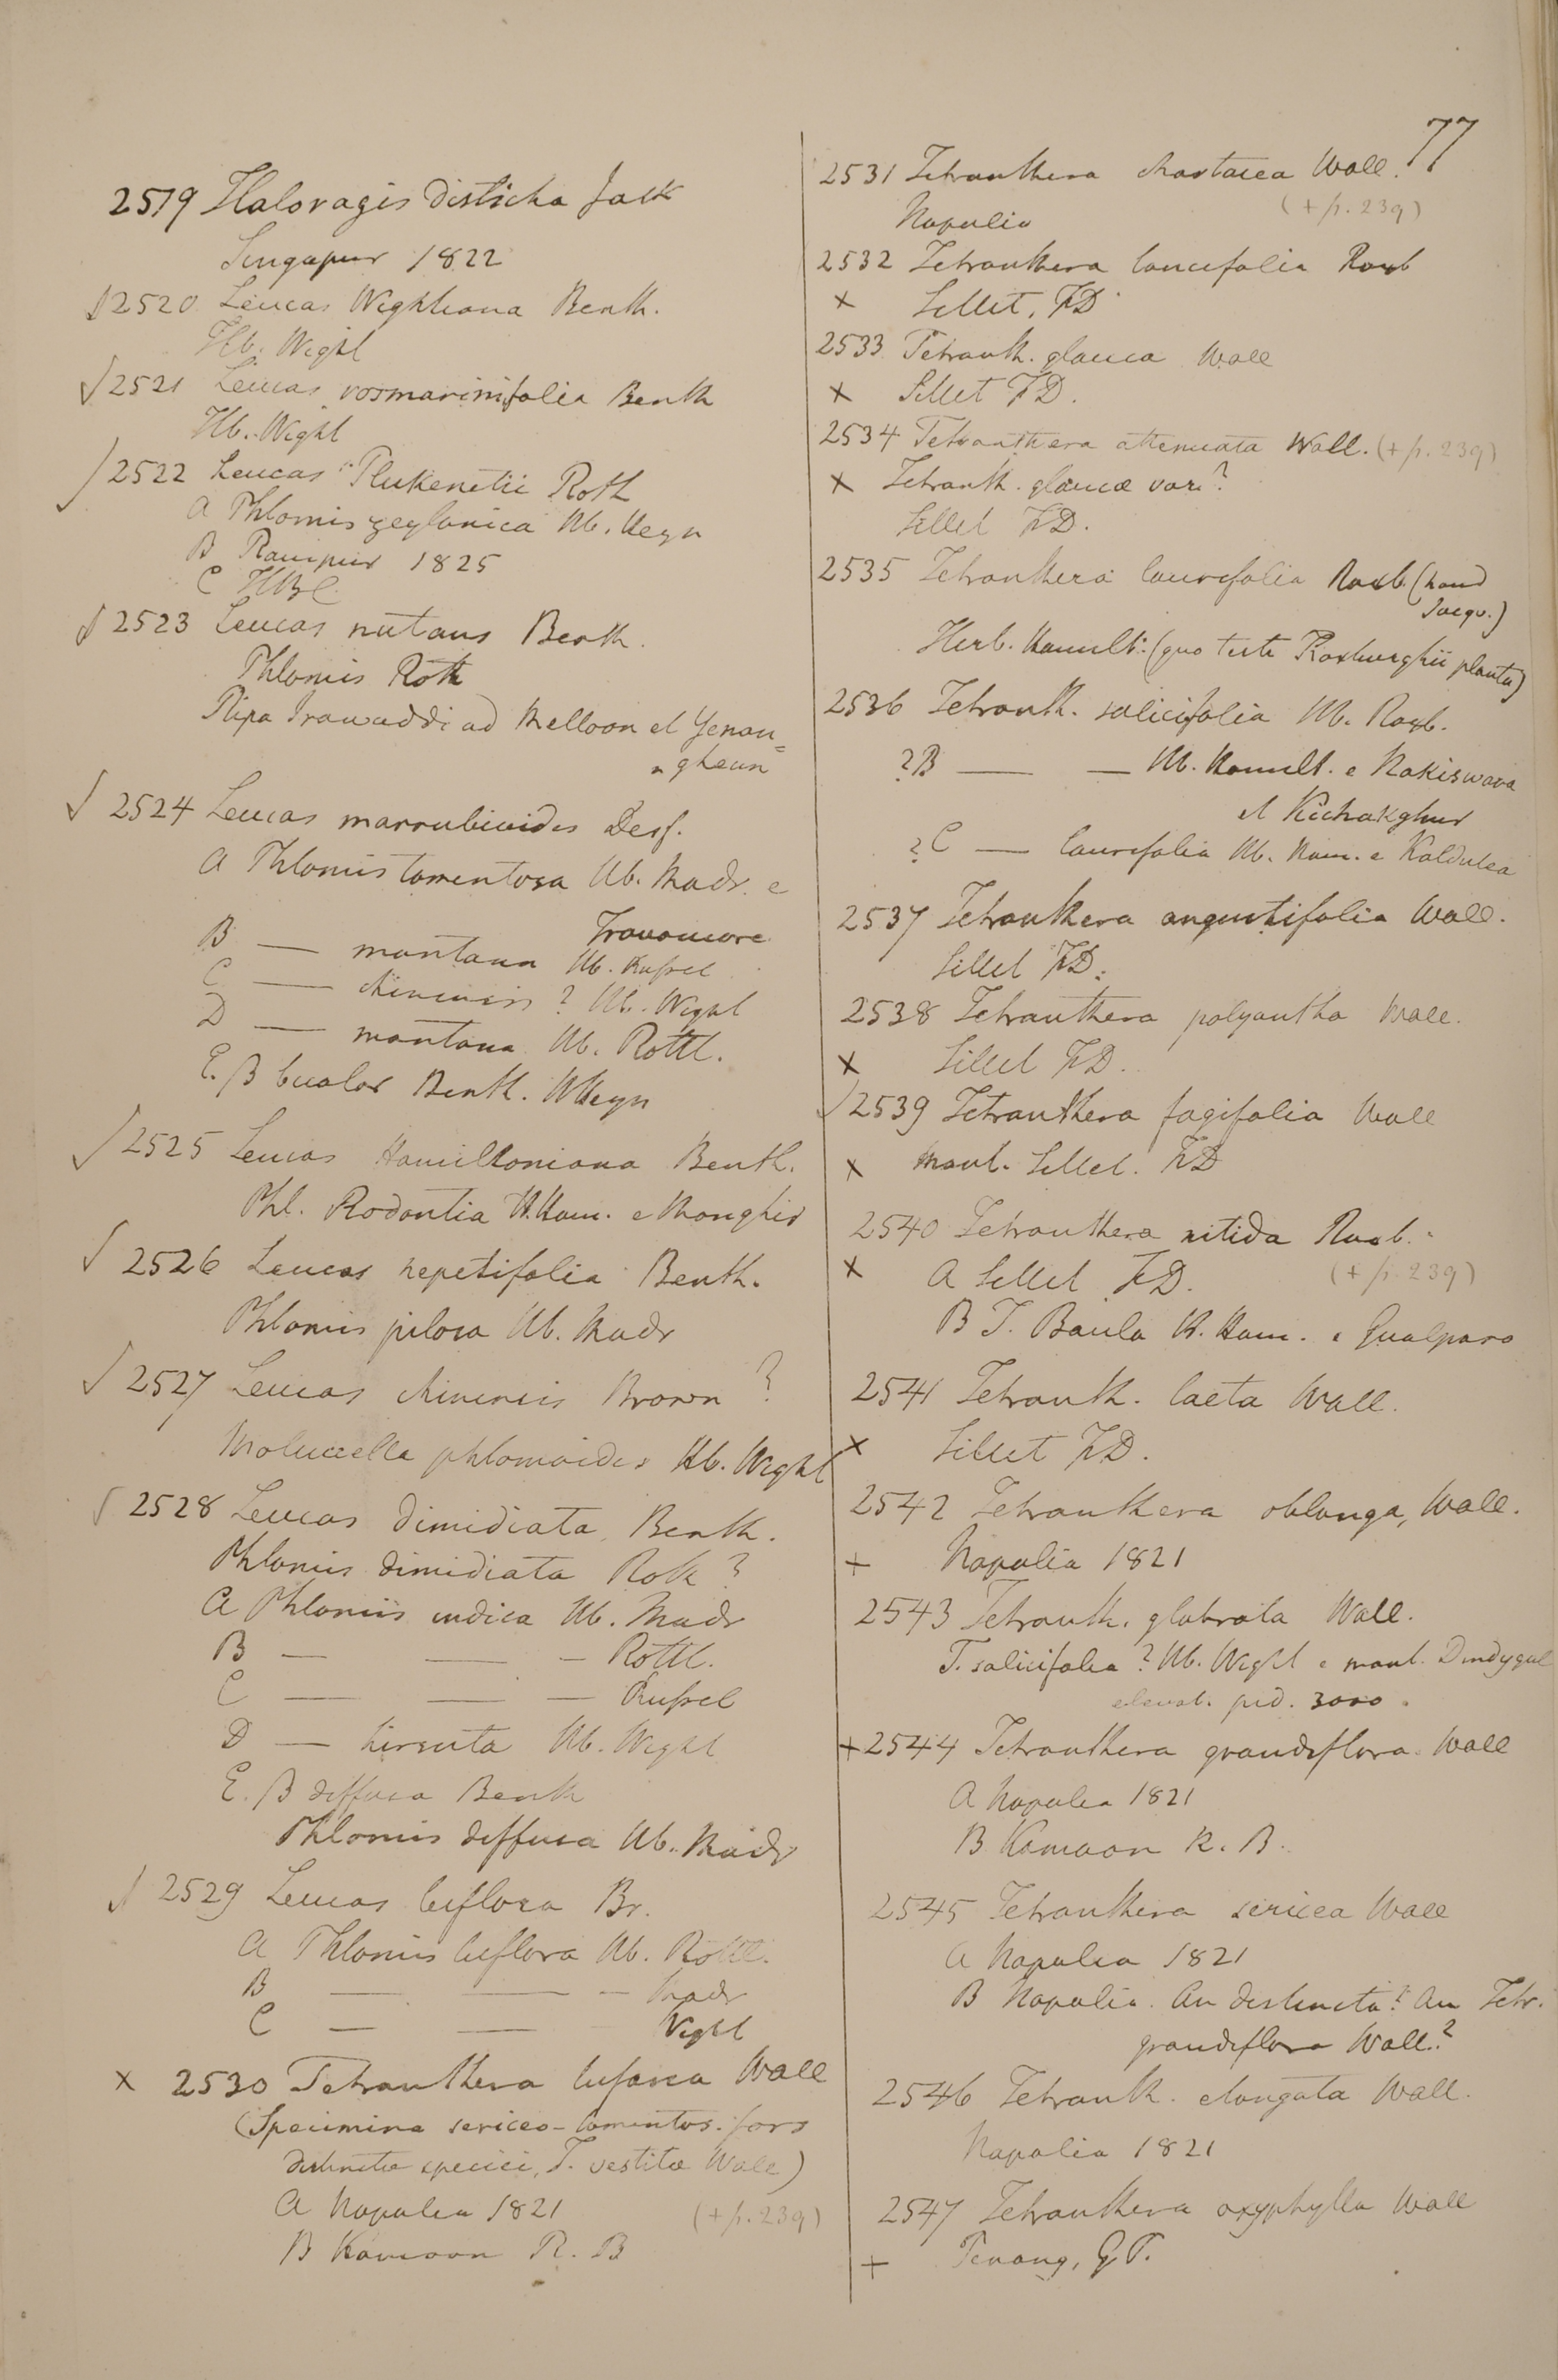 77
2519 Haloragis disticha Jack
Singapur 1822
√2520 Leucas Wightiana Benth.
Hb. Wight
√2521 Leucas rosmarinifolia Benth
Hb. Wight
√2522 Leucas Plukenetii Roth
A Phlomis zeylanica Hb. Heyn
B Rampur 1825
C HBC
√2523 Leucas nutans Benth.
Phlomis Roth
Ripa Irawaddi ad Melloon et Yenan=
gheun
√ 2524 Leucas marrubioides Desf.
A Phlomis tomentosa Hb. Madr. e
Travancore
B — montana Hb. Russel
C — chinensis ? Hb. Wight
D — montana Hb. Rottl.
E. β bicolor Benth. HHeyn
√ 2525 Leucas Hamiltoniana Benth.
Phl. Rodontia H. Ham. e Monghir
√ 2526 Leucas nepetifolia Benth.
Phlomis pilosa Hb. Madr
√ 2527 Leucas chinensis Brown ?
Moluccella phlomoides Hb. Wight
√ 2528 Leucas dimidiata Benth.
Phlomis dimidiata Roth ?
A Phlomis indica Hb. Madr
B — — — Rottl.
C — — — Russel
D — hirsuta Hb. Wight
E. β diffusa Benth
Phlomis diffusa Hb. Madr
√ 2529 Leucas biflora Br.
A Phlomis biflora Hb. Rottl.
B — — — Madr
C — — Wight
x 2530 Tetranthera bifaria Wall
(Specimina sericeo-tomentos. fors
distinctæ speciei, T. vestitæ Wall)
A Napalia 1821 (+ p. 239)
B Kamoon R. B
2531 Tetranthera chartacea Wall.
Napalia (+ p. 239)
2532 Tetranthera lancifolia Roxb
x Sillet, FD
2533 Tetranth. glauca Wall
x Sillet FD.
2534 Tetranthera attenuata Wall. (+ p. 239)
x Tetranth. glaucæ var. ?
Sillet FD.
2535 Tetranthera laurifolia Roxb. (haud
Jacqu.)
Herb. Hamilt. (quo teste Roxburghii planta)
2536 Tetranth. salicifolia Hb. Roxb.
?B — — Hb. Hamilt. e Nakiswara
et Kichakghur
?C — laurifolia Hb. Ham. e Kaldulea
2537 Tetranthera angustifolia Wall.
Sillet FD.
2538 Tetranthera polyantha Wall.
x Sillet FD.
√2539 Tetranthera fagifolia Wall
x mont. Sillet. FD
2540 Tetranthera nitida Roxb.
x A Sillet FD. (+ p. 239)
B T. Baula H. Ham. e Gualpara
2541 Tetranth. laeta Wall.
x Sillet FD.
2542 Tetranthera oblonga, Wall.
+ Napalia 1821
2543 Tetranth. glabrata Wall.
T. salicifolia ? Hb. Wight e mont. Dindygul
elevat. ped. 3000.
+2544 Tetranthera grandiflora Wall
A Napalia 1821
B Kamaon R. B.
2545 Tetranthera sericea Wall
A Napalia 1821
B Napalia. An distincta? An Tetr.
grandiflora Wall.?
2546 Tetranth. elongata Wall.
Napalia 1821
2547 Tetranthera oxyphylla Wall
+ Penang, G.P.